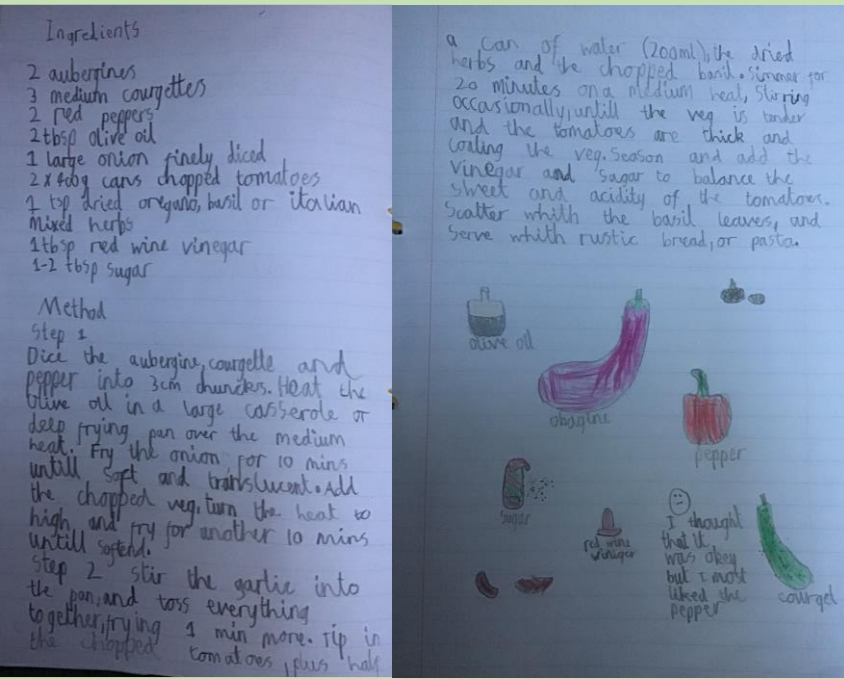 Ingredients
2 aubergines
3 medium courgettes
2 red peppers
2tbsp olive oil
1 large onion finely diced
2 x 400g cans chopped tomatoes
1 tsp dried oregano, basil or italian
mixed herbs
1tbsp red wine vinegar
1-2 tbsp sugar
Method
Step 1
Dice the aubergine, courgette and
pepper into 3cm chuncks. Heat the
olive oil in a large casserole or
deep frying pan over the medium
heat. Fry the onion for 10 mins
untill soft and translucent. Add
the chopped veg, turn the heat to
high, and fry for another 10 mins
untill softend.
Step 2 stir the garlic into
the pan, and toss everything
together, frying 1 min more. Tip in
the chopped tomatoes, plus half
a can of water (200ml), the dried
herbs and the chopped basil. Simmer for
20 minutes on a medium heat, stirring
occasionally, untill the veg is tender
and the tomatoes are thick and
coating the veg. Season and add the
vinegar and sugar to balance the
sweet and acidity of the tomatoes.
Scatter whith the basil leaves, and
serve whith rustic bread, or pasta.
olive oil
obagine
pepper
sugar
red wine
viniger
I thought
that it
was okey
but I most
liked the
pepper
courget